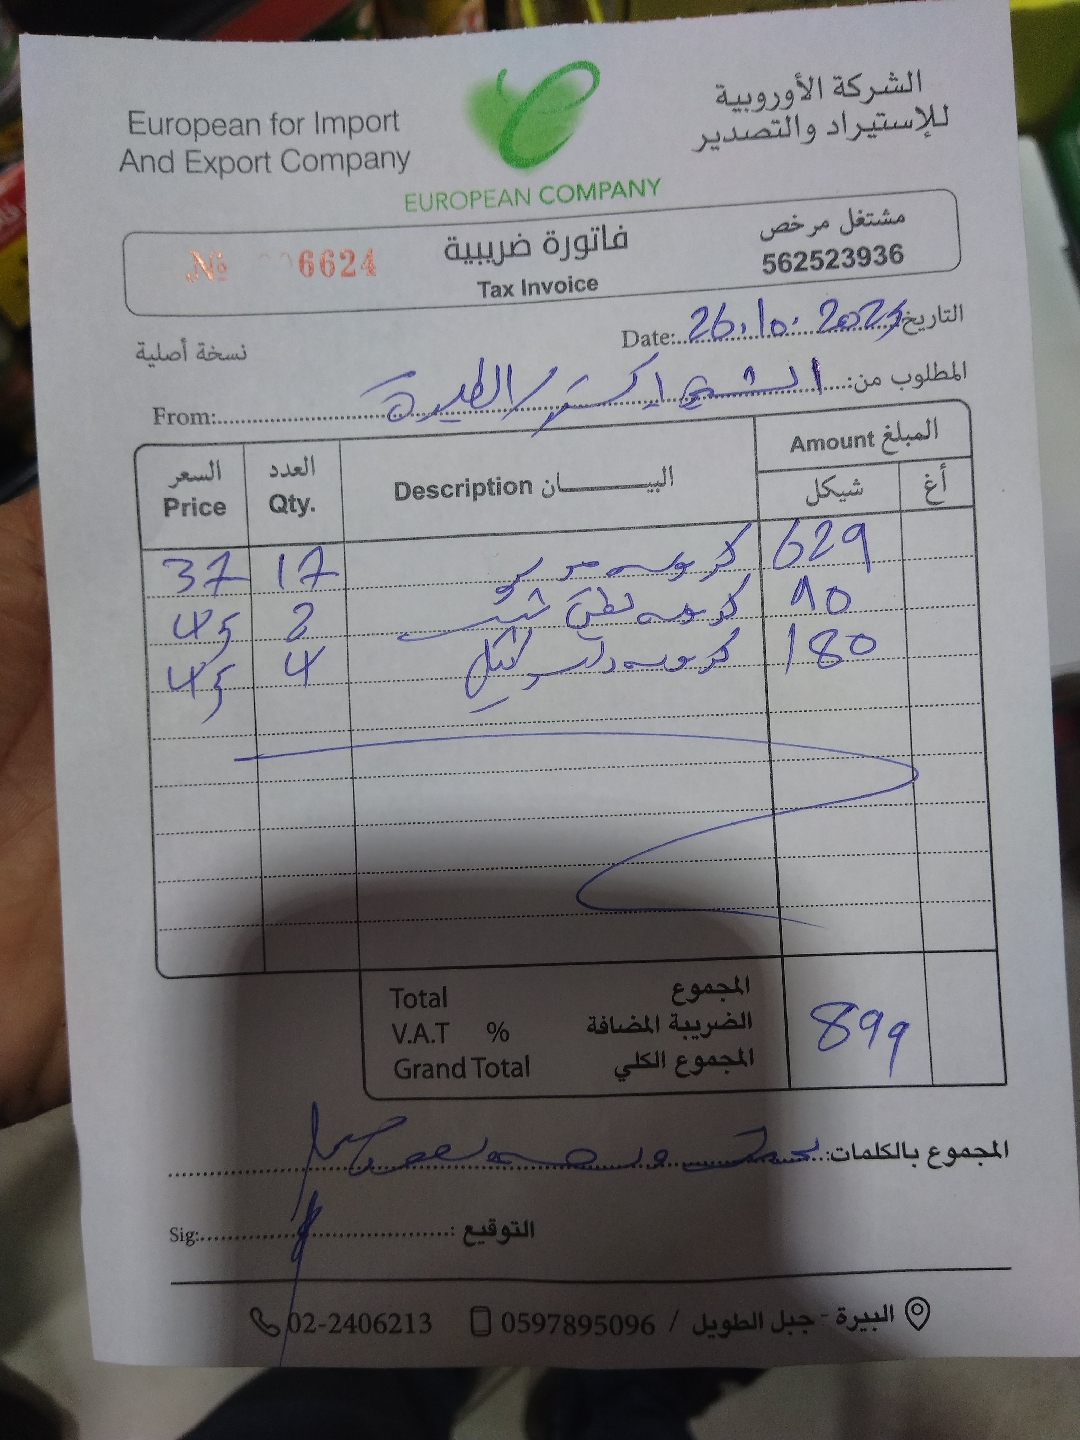 European for Import
And Export Company
EUROPEAN COMPANY
الشركة الأوروبية
للإستيراد والتصدير
№ 6624
فاتورة ضريبية
Tax Invoice
مشتغل مرخص
562523936
نسخة أصلية
Date: 26.10.2025 التاريخ
From: المطلوب من:
السعر العدد البيـــــــان Description المبلغ Amount
Price Qty. شيكل أغ
37 17 629
45 2 90
45 4 180
Total المجموع
V.A.T % الضريبة المضافة
Grand Total المجموع الكلي
899
المجموع بالكلمات:
Sig: التوقيع :
02-2406213 0597895096 / البيرة - جبل الطويل